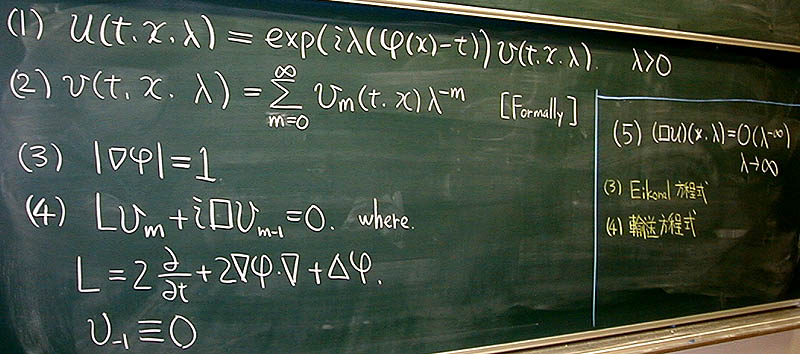 (1) u(t, x, λ) = exp(iλ(φ(x)-t)) v(t, x, λ). λ>0
(2) v(t, x, λ) = ∑_{m=0}^{∞} v_m(t, x) λ^{-m} [Formally]
(3) |∇φ| = 1
(4) Lv_m + i□v_{m-1} = 0. where.
L = 2 ∂/∂t + 2∇φ·∇ + Δφ.
v_{-1} ≡ 0
(5) (□u)(x, λ) = O(λ^{-∞})
λ→∞
(3) Eikonal 方程式
(4) 輸送方程式